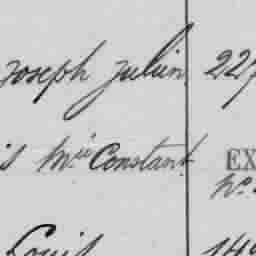 Joseph Julien 227
is Mie Constant EX
No.
Louis 14